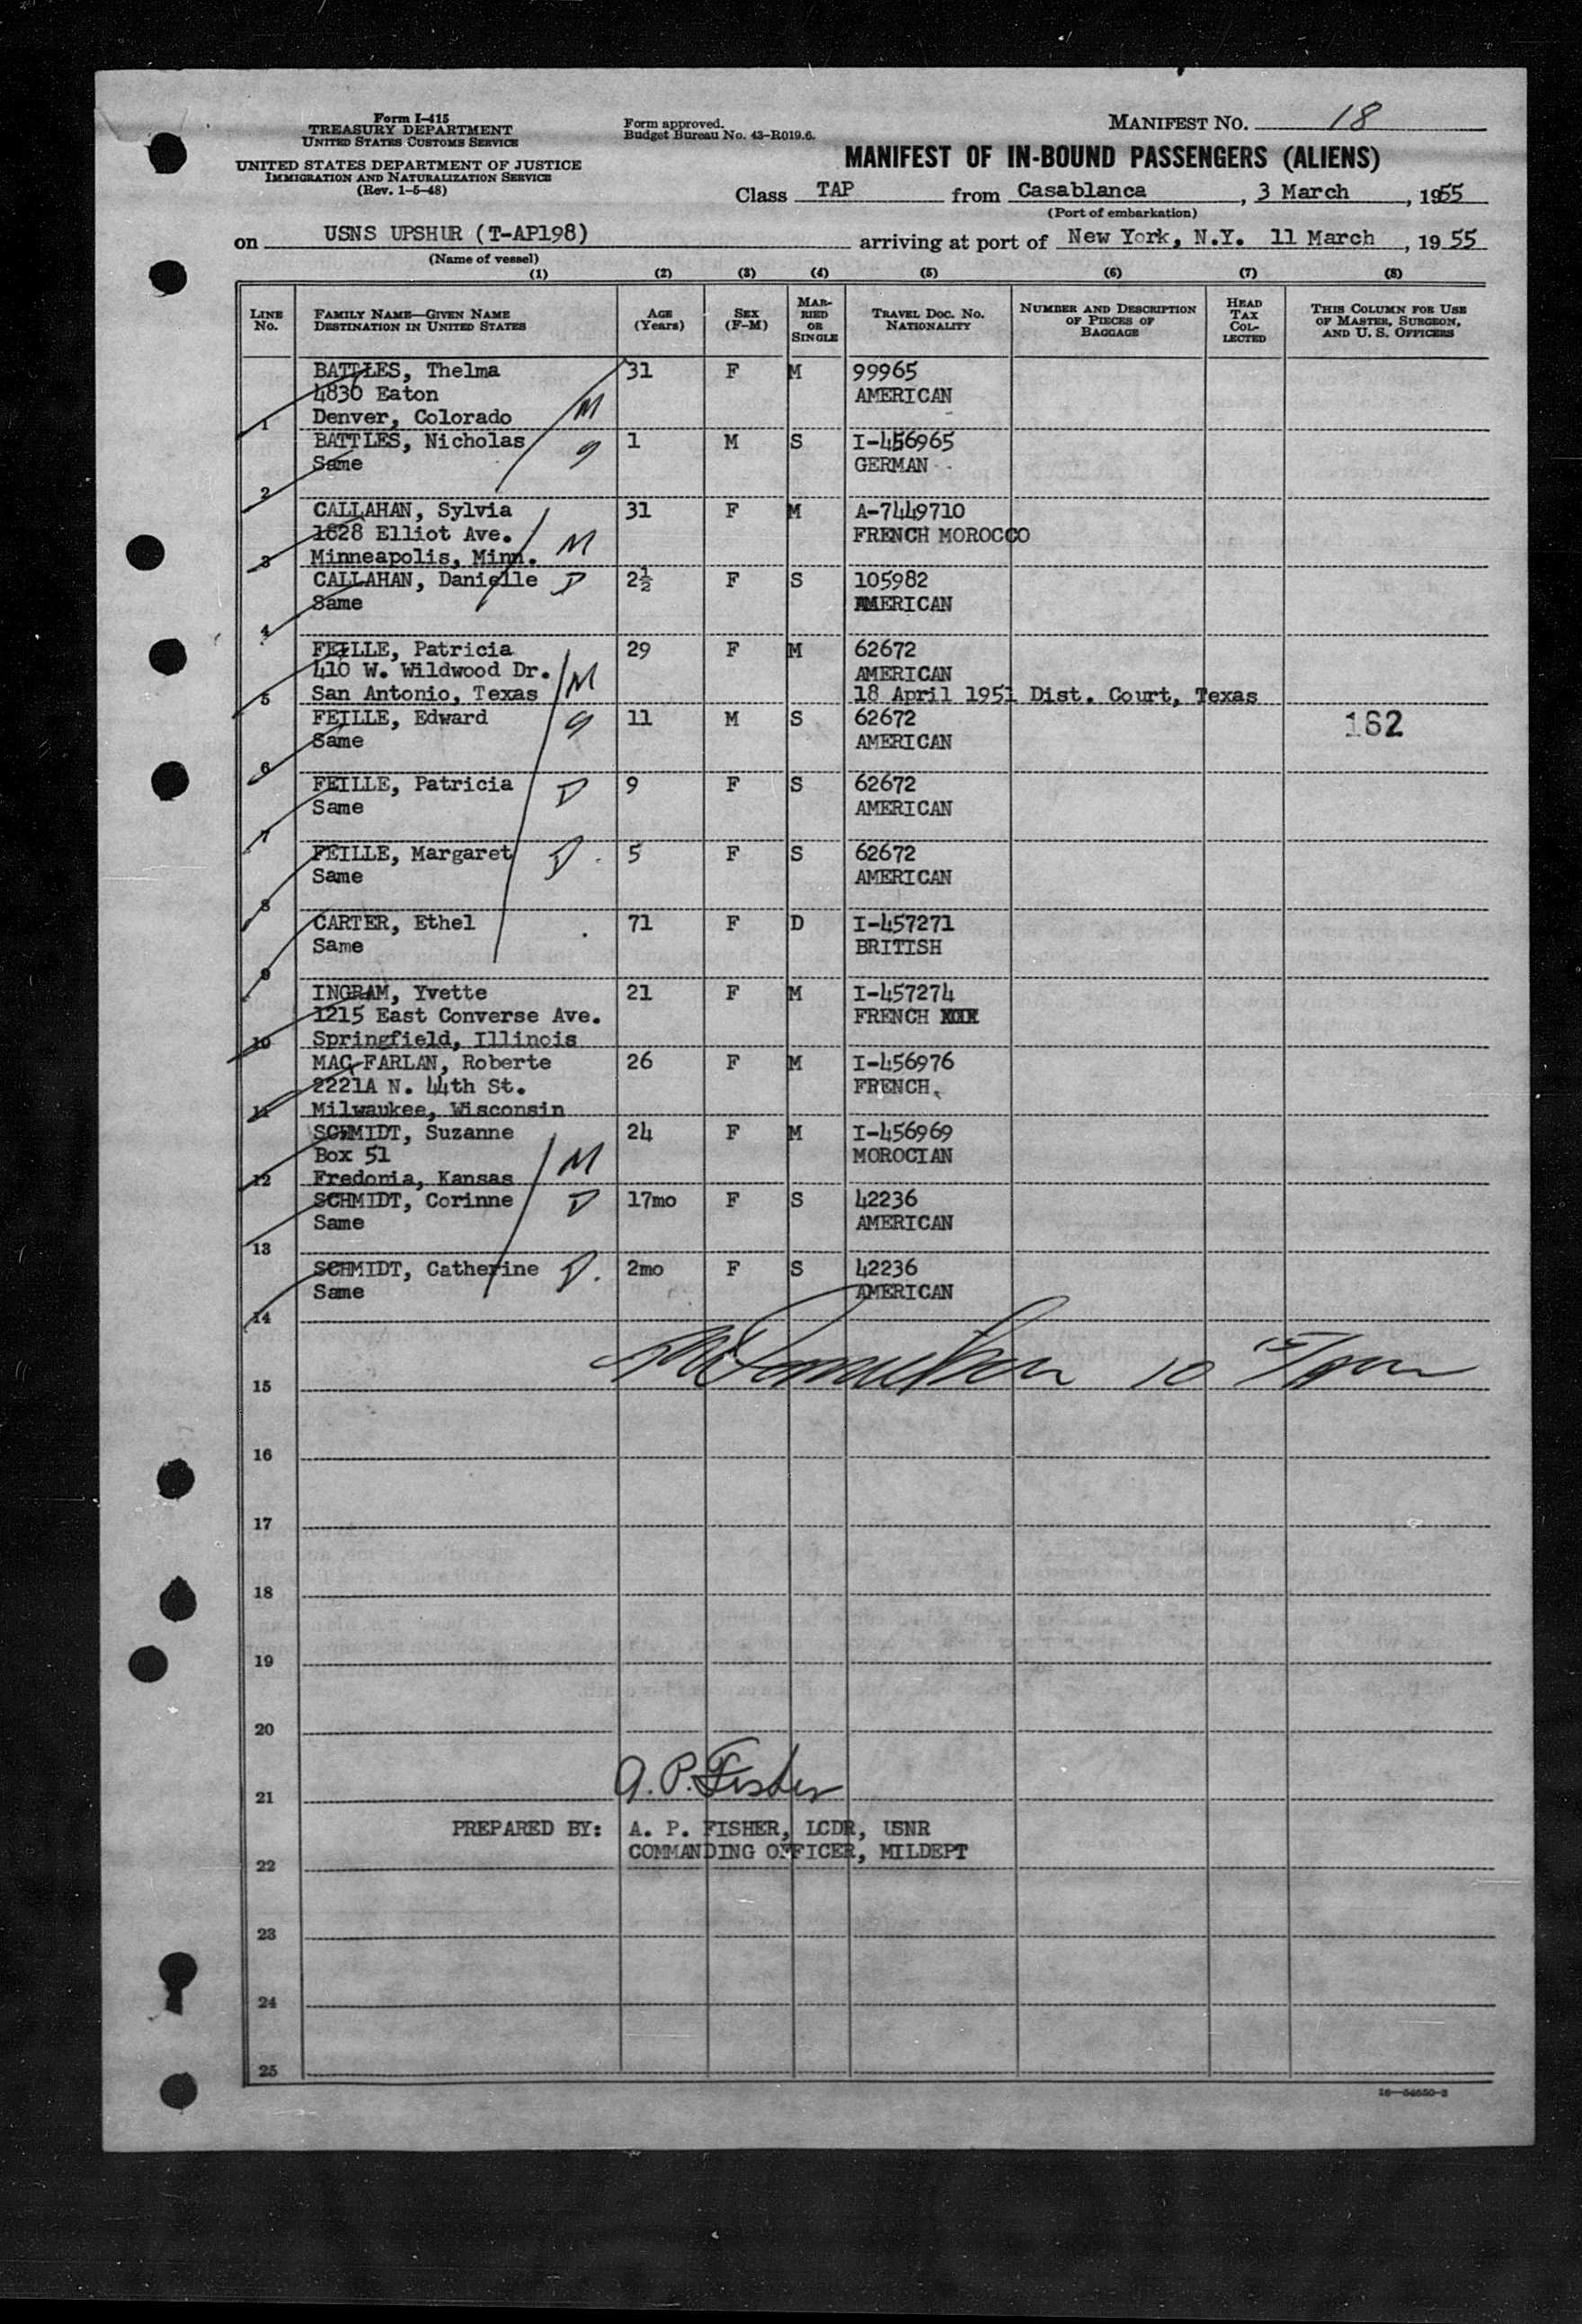 Form I-415
TREASURY DEPARTMENT
UNITED STATES CUSTOMS SERVICE
UNITED STATES DEPARTMENT OF JUSTICE
IMMIGRATION AND NATURALIZATION SERVICE
(Rev. 1-5-48)
Form approved.
Budget Bureau No. 43-R019.6.
MANIFEST No. 18
MANIFEST OF IN-BOUND PASSENGERS (ALIENS)
Class TAP from Casablanca, 3 March, 1955
(Port of embarkation)
on USNS UPSHUR (T-AP198) arriving at port of New York, N.Y. 11 March, 1955
(Name of vessel)
(1) (2) (3) (4) (5) (6) (7) (8)
LINE No.
FAMILY NAME—GIVEN NAME
DESTINATION IN UNITED STATES
AGE (Years)
SEX (F-M)
MARRIED OR SINGLE
TRAVEL DOC. NO.
NATIONALITY
NUMBER AND DESCRIPTION OF PIECES OF BAGGAGE
HEAD TAX COLLECTED
THIS COLUMN FOR USE OF MASTER, SURGEON, AND U. S. OFFICERS
BATTLES, Thelma 31 F M 99965
4830 Eaton AMERICAN
1 Denver, Colorado M
BATTLES, Nicholas 1 M S I-456965
Same GERMAN
2
CALLAHAN, Sylvia 31 F M A-7449710
1628 Elliot Ave. FRENCH MOROCCO
3 Minneapolis, Minn. M
CALLAHAN, Danielle D 2½ F S 105982
Same AMERICAN
4
FEILLE, Patricia 29 F M 62672
410 W. Wildwood Dr. AMERICAN
5 San Antonio, Texas M 18 April 1951 Dist. Court, Texas
FEILLE, Edward 11 M S 62672 162
Same AMERICAN
6
FEILLE, Patricia D 9 F S 62672
Same AMERICAN
7
FEILLE, Margaret D. 5 F S 62672
Same AMERICAN
8
CARTER, Ethel 71 F D I-457271
Same BRITISH
9
INGRAM, Yvette 21 F M I-457274
1215 East Converse Ave. FRENCH
10 Springfield, Illinois
MAC FARLAN, Roberte 26 F M I-456976
2221A N. 44th St. FRENCH
11 Milwaukee, Wisconsin
SCHMIDT, Suzanne 24 F M I-456969
Box 51 MOROCIAN
12 Fredonia, Kansas M
SCHMIDT, Corinne D 17mo F S 42236
Same AMERICAN
13
SCHMIDT, Catherine D. 2mo F S 42236
Same AMERICAN
14
15
16
17
18
19
20
A. P. Fisher
21
PREPARED BY: A. P. FISHER, LCDR, USNR
COMMANDING OFFICER, MILDEPT
22
23
24
25